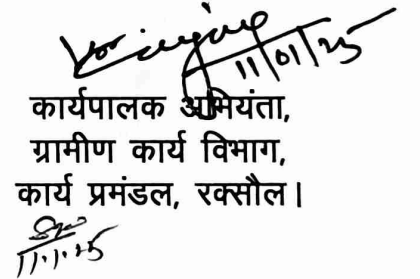 11/01/25
कार्यपालक अभियंता,
ग्रामीण कार्य विभाग,
कार्य प्रमंडल, रक्सौल।
11.1.25